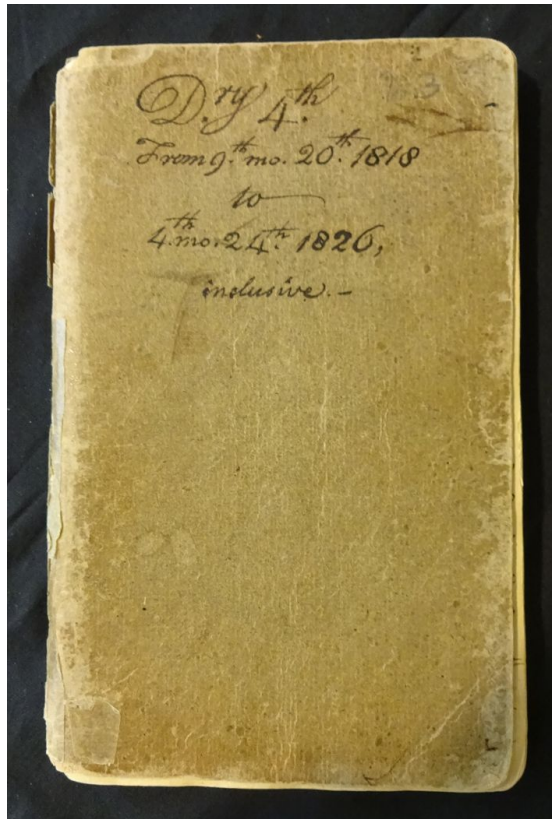 D.ry 4.th
From 9.th mo. 20.th 1818
to
4.th mo. 24.th 1826,
inclusive. –